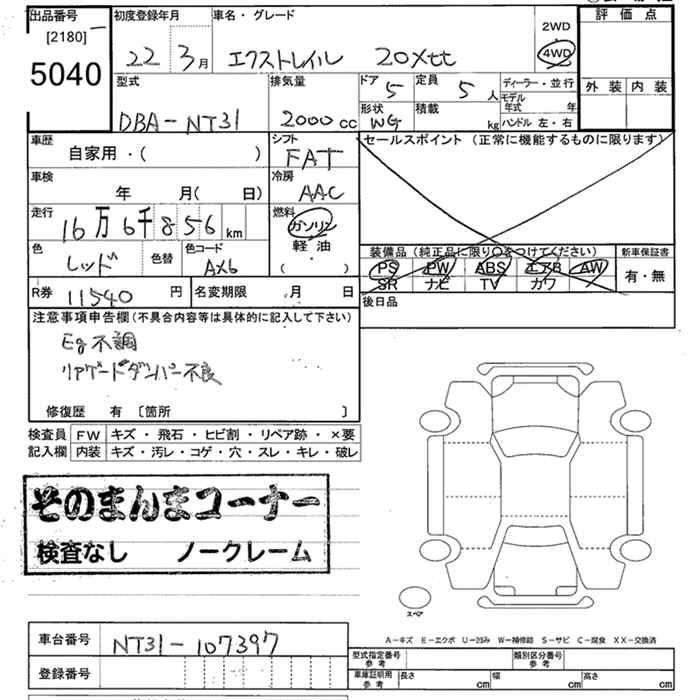 出品番号 初度登録年月 車名・グレード 評価点
[2180] 2WD
5040 22 3月 エクストレイル 20Xtt 4WD
型式 排気量 ドア 5 定員 5人 ディーラー・並行 外装 内装
DBA-NT31 2000cc 形状 WG 積載 kg モデル年式 年
ハンドル 左・右
車歴 シフト セールスポイント(正常に機能するものに限ります)
自家用・( ) FAT
車検 冷房
年 月( 日) AAC
走行 燃料
16万6千856km ガソリン
軽油
( )
色 色替 色コード 装備品(純正品に限り○をつけてください) 新車保証書
レッド AX6 PS PW ABS エアB AW 有・無
SR ナビ TV カワ
R券 11540円 名変期限 月 日 後日品
注意事項申告欄(不具合内容等は具体的に記入して下さい)
Eg不調
リアゲートダンパー不良
修復歴 有 [箇所 ]
検査員 FW キズ・飛石・ヒビ割・リペア跡・×要
記入欄 内装 キズ・汚レ・コゲ・穴・スレ・キレ・破レ
そのまんまコーナー
検査なし ノークレーム
スペア
A-キズ E-エクボ U-凹み W-補修跡 S-サビ C-腐食 XX-交換済
車台番号 NT31-107397
型式指定番号 参考 類別区分番号 参考
登録番号 車庫証明用 参考 長さ cm 幅 cm 高さ cm